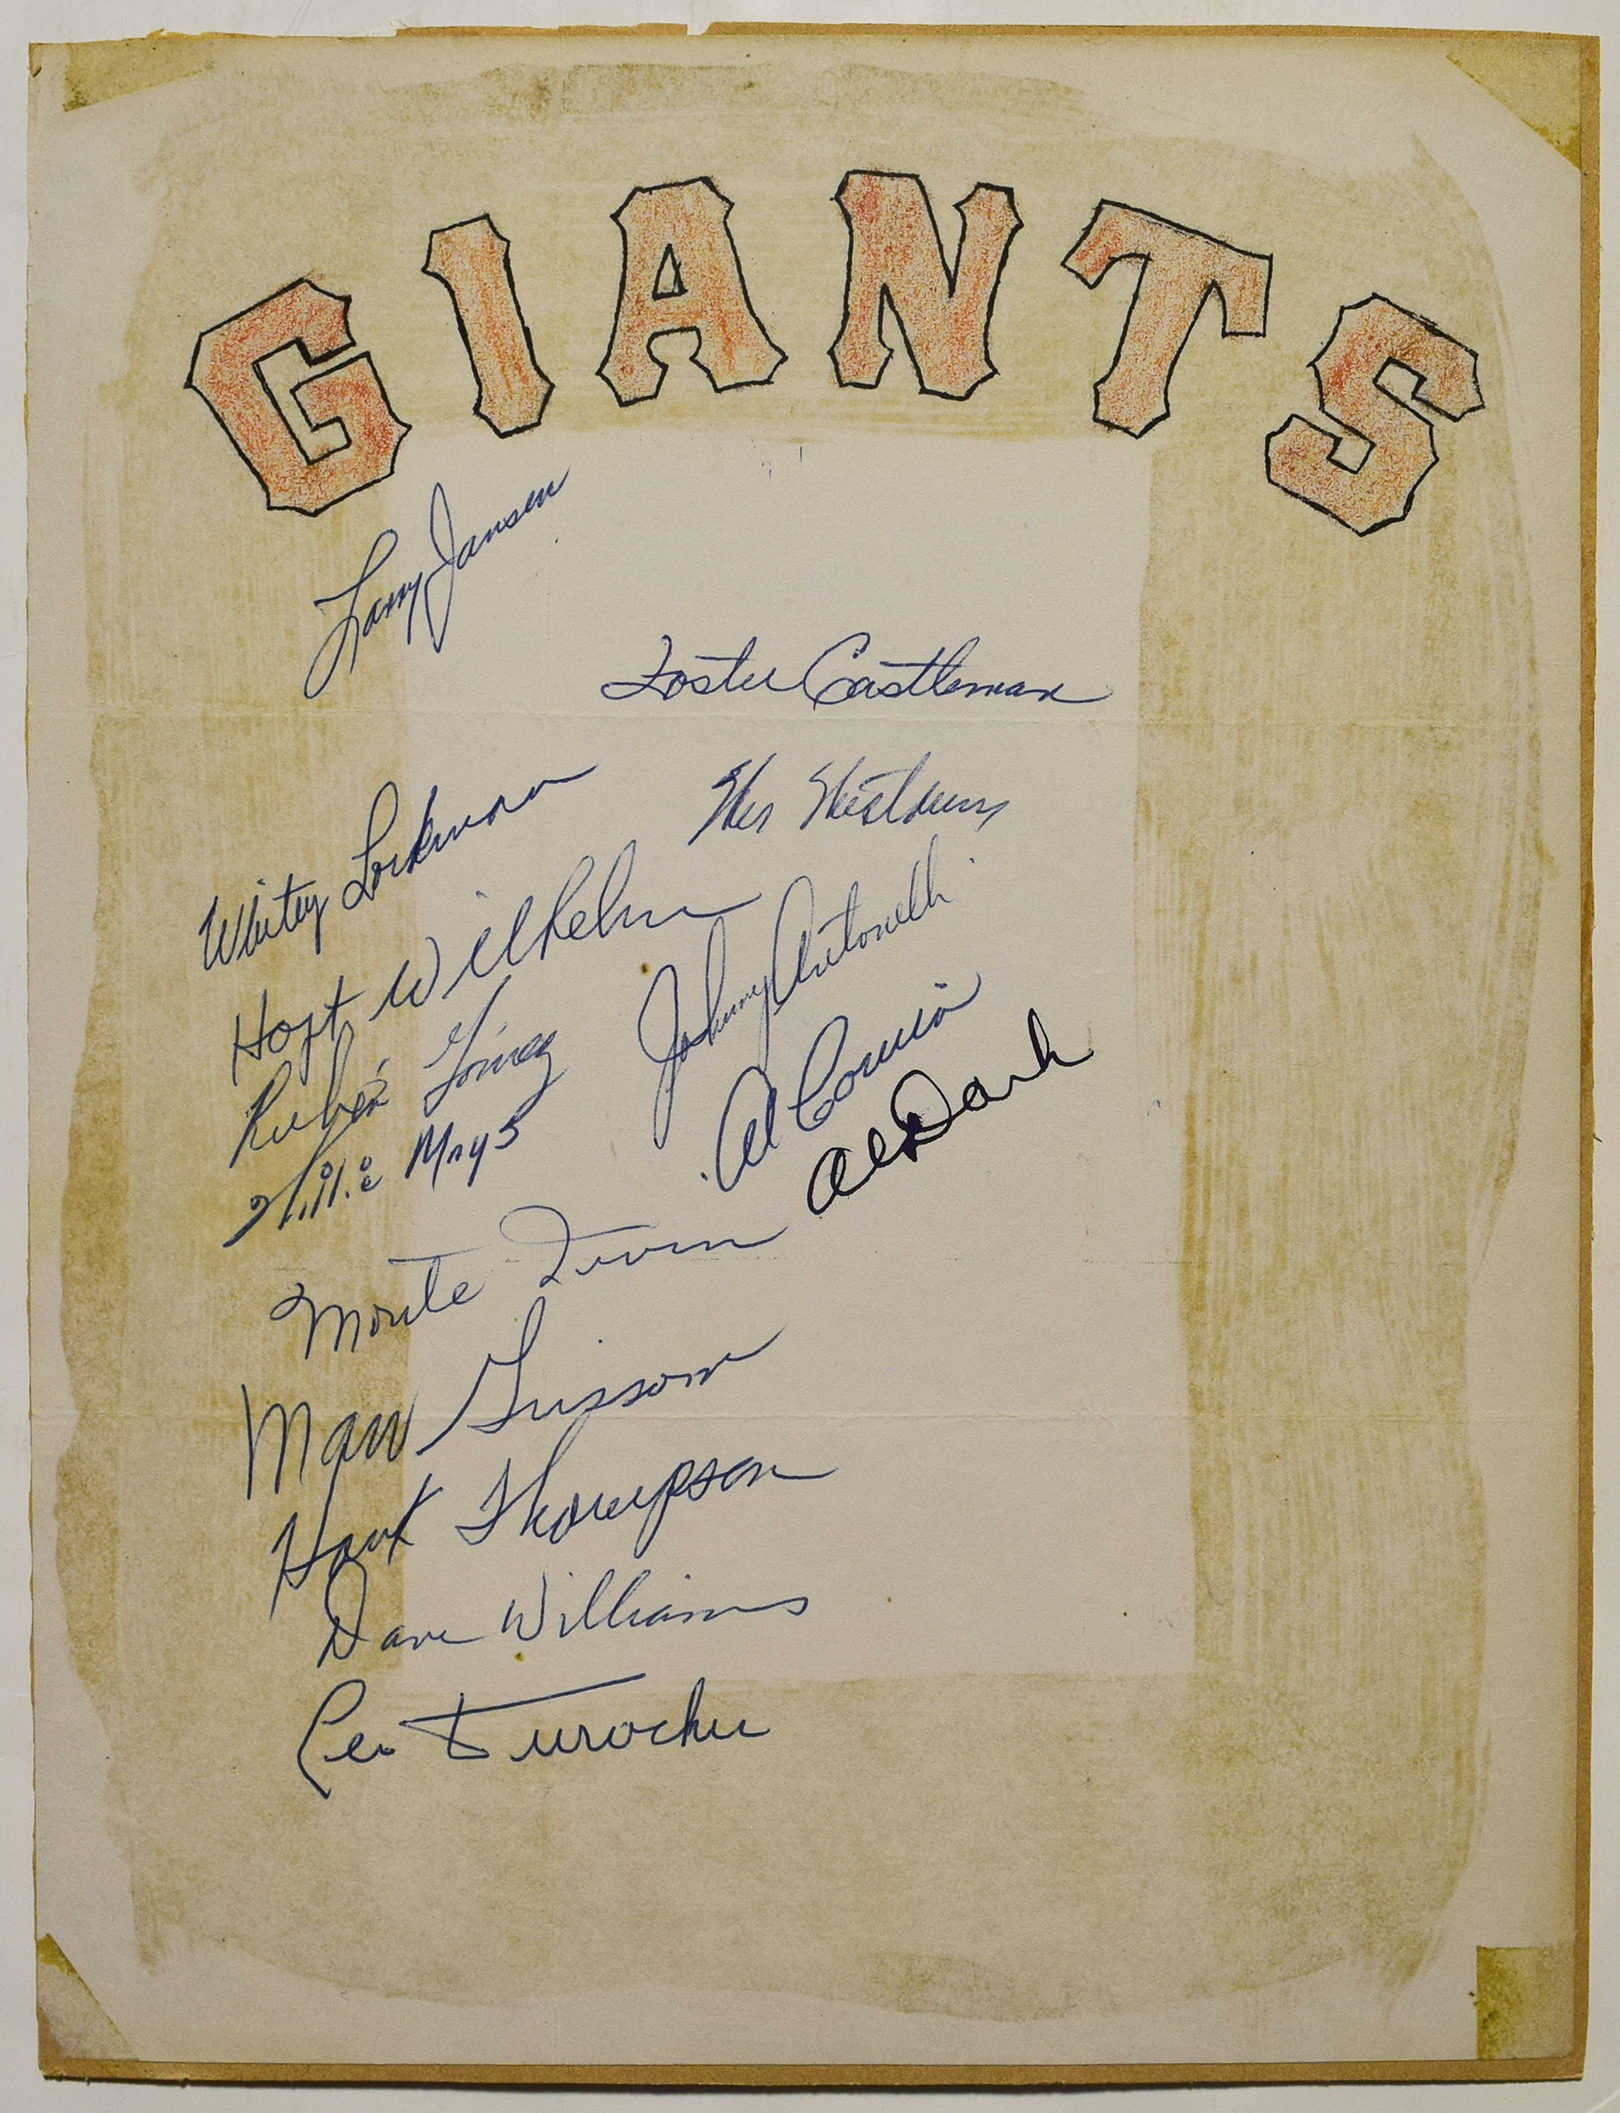 GIANTS
Larry Jansen
Foster Castleman
Wes Westrum
Whitey Lockman
Hoyt Wilhelm
Johnny Antonelli
Rubén Gómez
Al Corwin
Willie Mays
Al Dark
Monte Irvin
Marv Grissom
Hank Thompson
Dave Williams
Leo Durocher